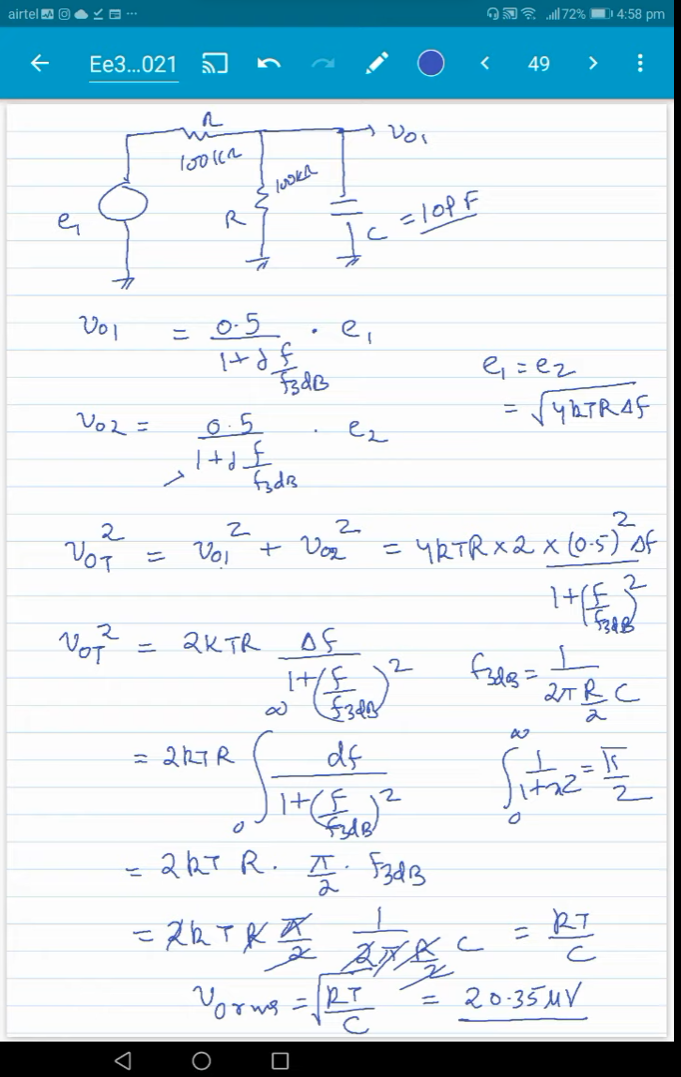 airtel 72% 4:58 pm
Ee3...021 49
R
100kΩ
100kΩ
R
e1
vo1
C = 10pF
vo1 = 0.5 / (1+j f/f3dB) · e1
e1 = e2
= √(4kTRΔf)
vo2 = 0.5 / (1+j f/f3dB) · e2
voT² = vo1² + vo2² = 4kTR × 2 × (0.5)² Δf / (1+(f/f3dB)²)
voT² = 2KTR Δf / (1+(f/f3dB)²)
f3dB = 1 / (2π R/2 C)
= 2kTR ∫0^∞ df / (1+(f/f3dB)²)
∫0^∞ 1/(1+x2) = π/2
= 2kT R · π/2 · f3dB
= 2kT R π/2 1 / (2π R/2 C) = kT/C
Vorms = √(kT/C) = 20.35 μV